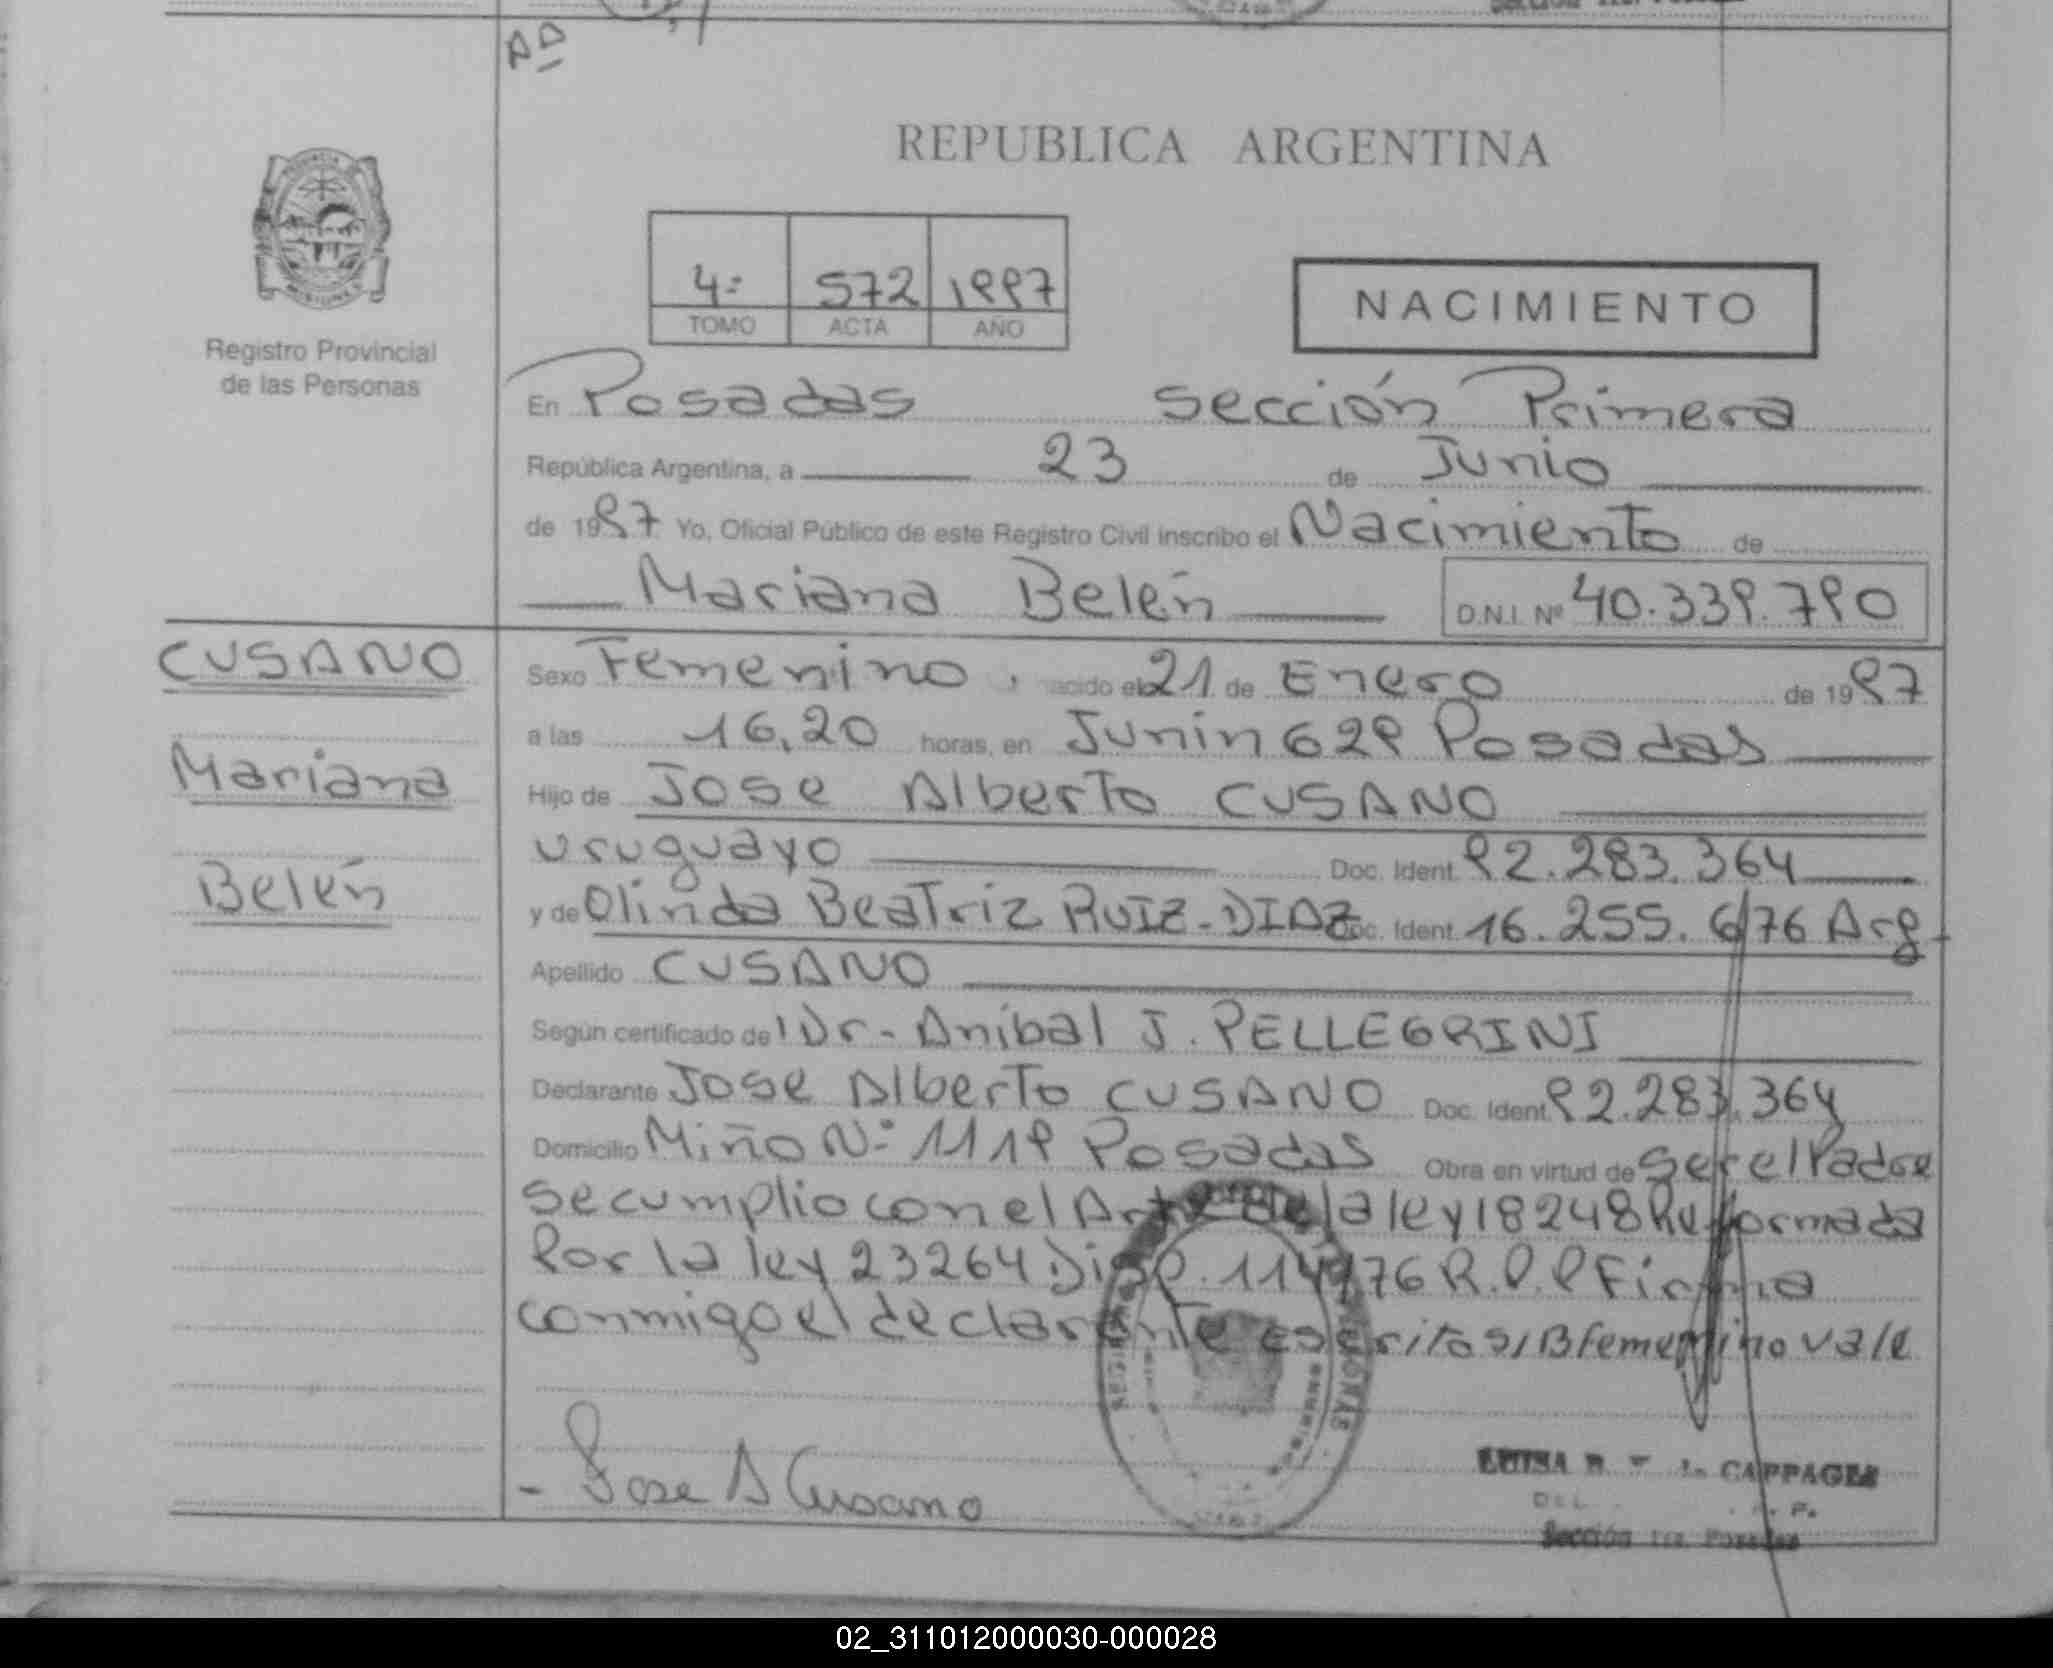 AD
REPUBLICA ARGENTINA
Registro Provincial
de las Personas
4º 572 1997
TOMO ACTA AÑO
NACIMIENTO
En Posadas sección Primera
República Argentina, a 23 de Junio
de 1997 Yo, Oficial Público de este Registro Civil inscribo el Nacimiento de
Mariana Belén D.N.I. Nº 40.339.790
CUSANO
Mariana
Belén
Sexo Femenino, nacido el 21 de Enero de 1997
a las 16,20 horas, en Junin 629 Posadas
Hijo de Jose Alberto CUSANO
uruguayo Doc. Ident. 92.283.364
y de Olinda Beatriz RUIZ-DIAZ Doc. Ident. 16.255.676 Arg
Apellido CUSANO
Según certificado de Dr. Anibal J. PELLEGRINI
Declarante Jose Alberto CUSANO Doc. Ident. 92.283.364
Domicilio Miño Nº 1119 Posadas Obra en virtud de ser el Padre
se cumplio con el Art de la ley 18248 Reformada
Por la ley 23264 Disp. 114/76 R.P.P Firma
conmigo el declarante Escrito s/B femenino vale
- Jose A Cusano
CAPPAGLI
Sección 1ra. Posadas
02_311012000030-000028